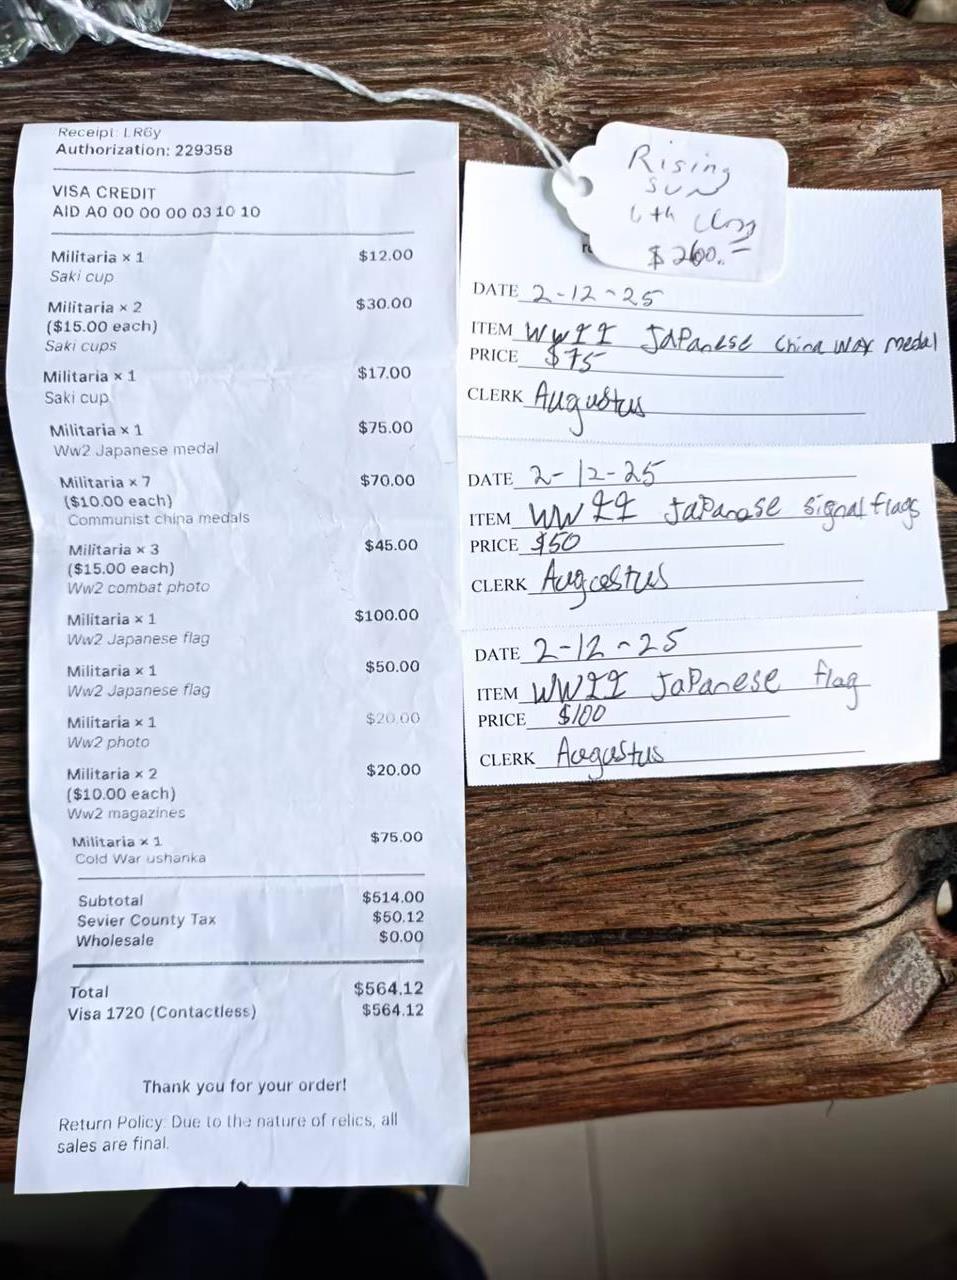 Receipt: LR6y
Authorization: 229358
VISA CREDIT
AID A0 00 00 00 03 10 10
Militaria x 1 $12.00
Saki cup
Militaria x 2 $30.00
($15.00 each)
Saki cups
Militaria x 1 $17.00
Saki cup
Militaria x 1 $75.00
Ww2 Japanese medal
Militaria x 7 $70.00
($10.00 each)
Communist china medals
Militaria x 3 $45.00
($15.00 each)
Ww2 combat photo
Militaria x 1 $100.00
Ww2 Japanese flag
Militaria x 1 $50.00
Ww2 Japanese flag
Militaria x 1 $20.00
Ww2 photo
Militaria x 2 $20.00
($10.00 each)
Ww2 magazines
Militaria x 1 $75.00
Cold War ushanka
Subtotal $514.00
Sevier County Tax $50.12
Wholesale $0.00
Total $564.12
Visa 1720 (Contactless) $564.12
Thank you for your order!
Return Policy: Due to the nature of relics, all
sales are final.
Rising
Sun
6th
$260.=
DATE 2-12-25
ITEM WWII Japanese China war medal
PRICE $75
CLERK Augustus
DATE 2-12-25
ITEM WWII Japanase signal flags
PRICE $50
CLERK Augustus
DATE 2-12-25
ITEM WWII Japanese flag
PRICE $100
CLERK Augustus